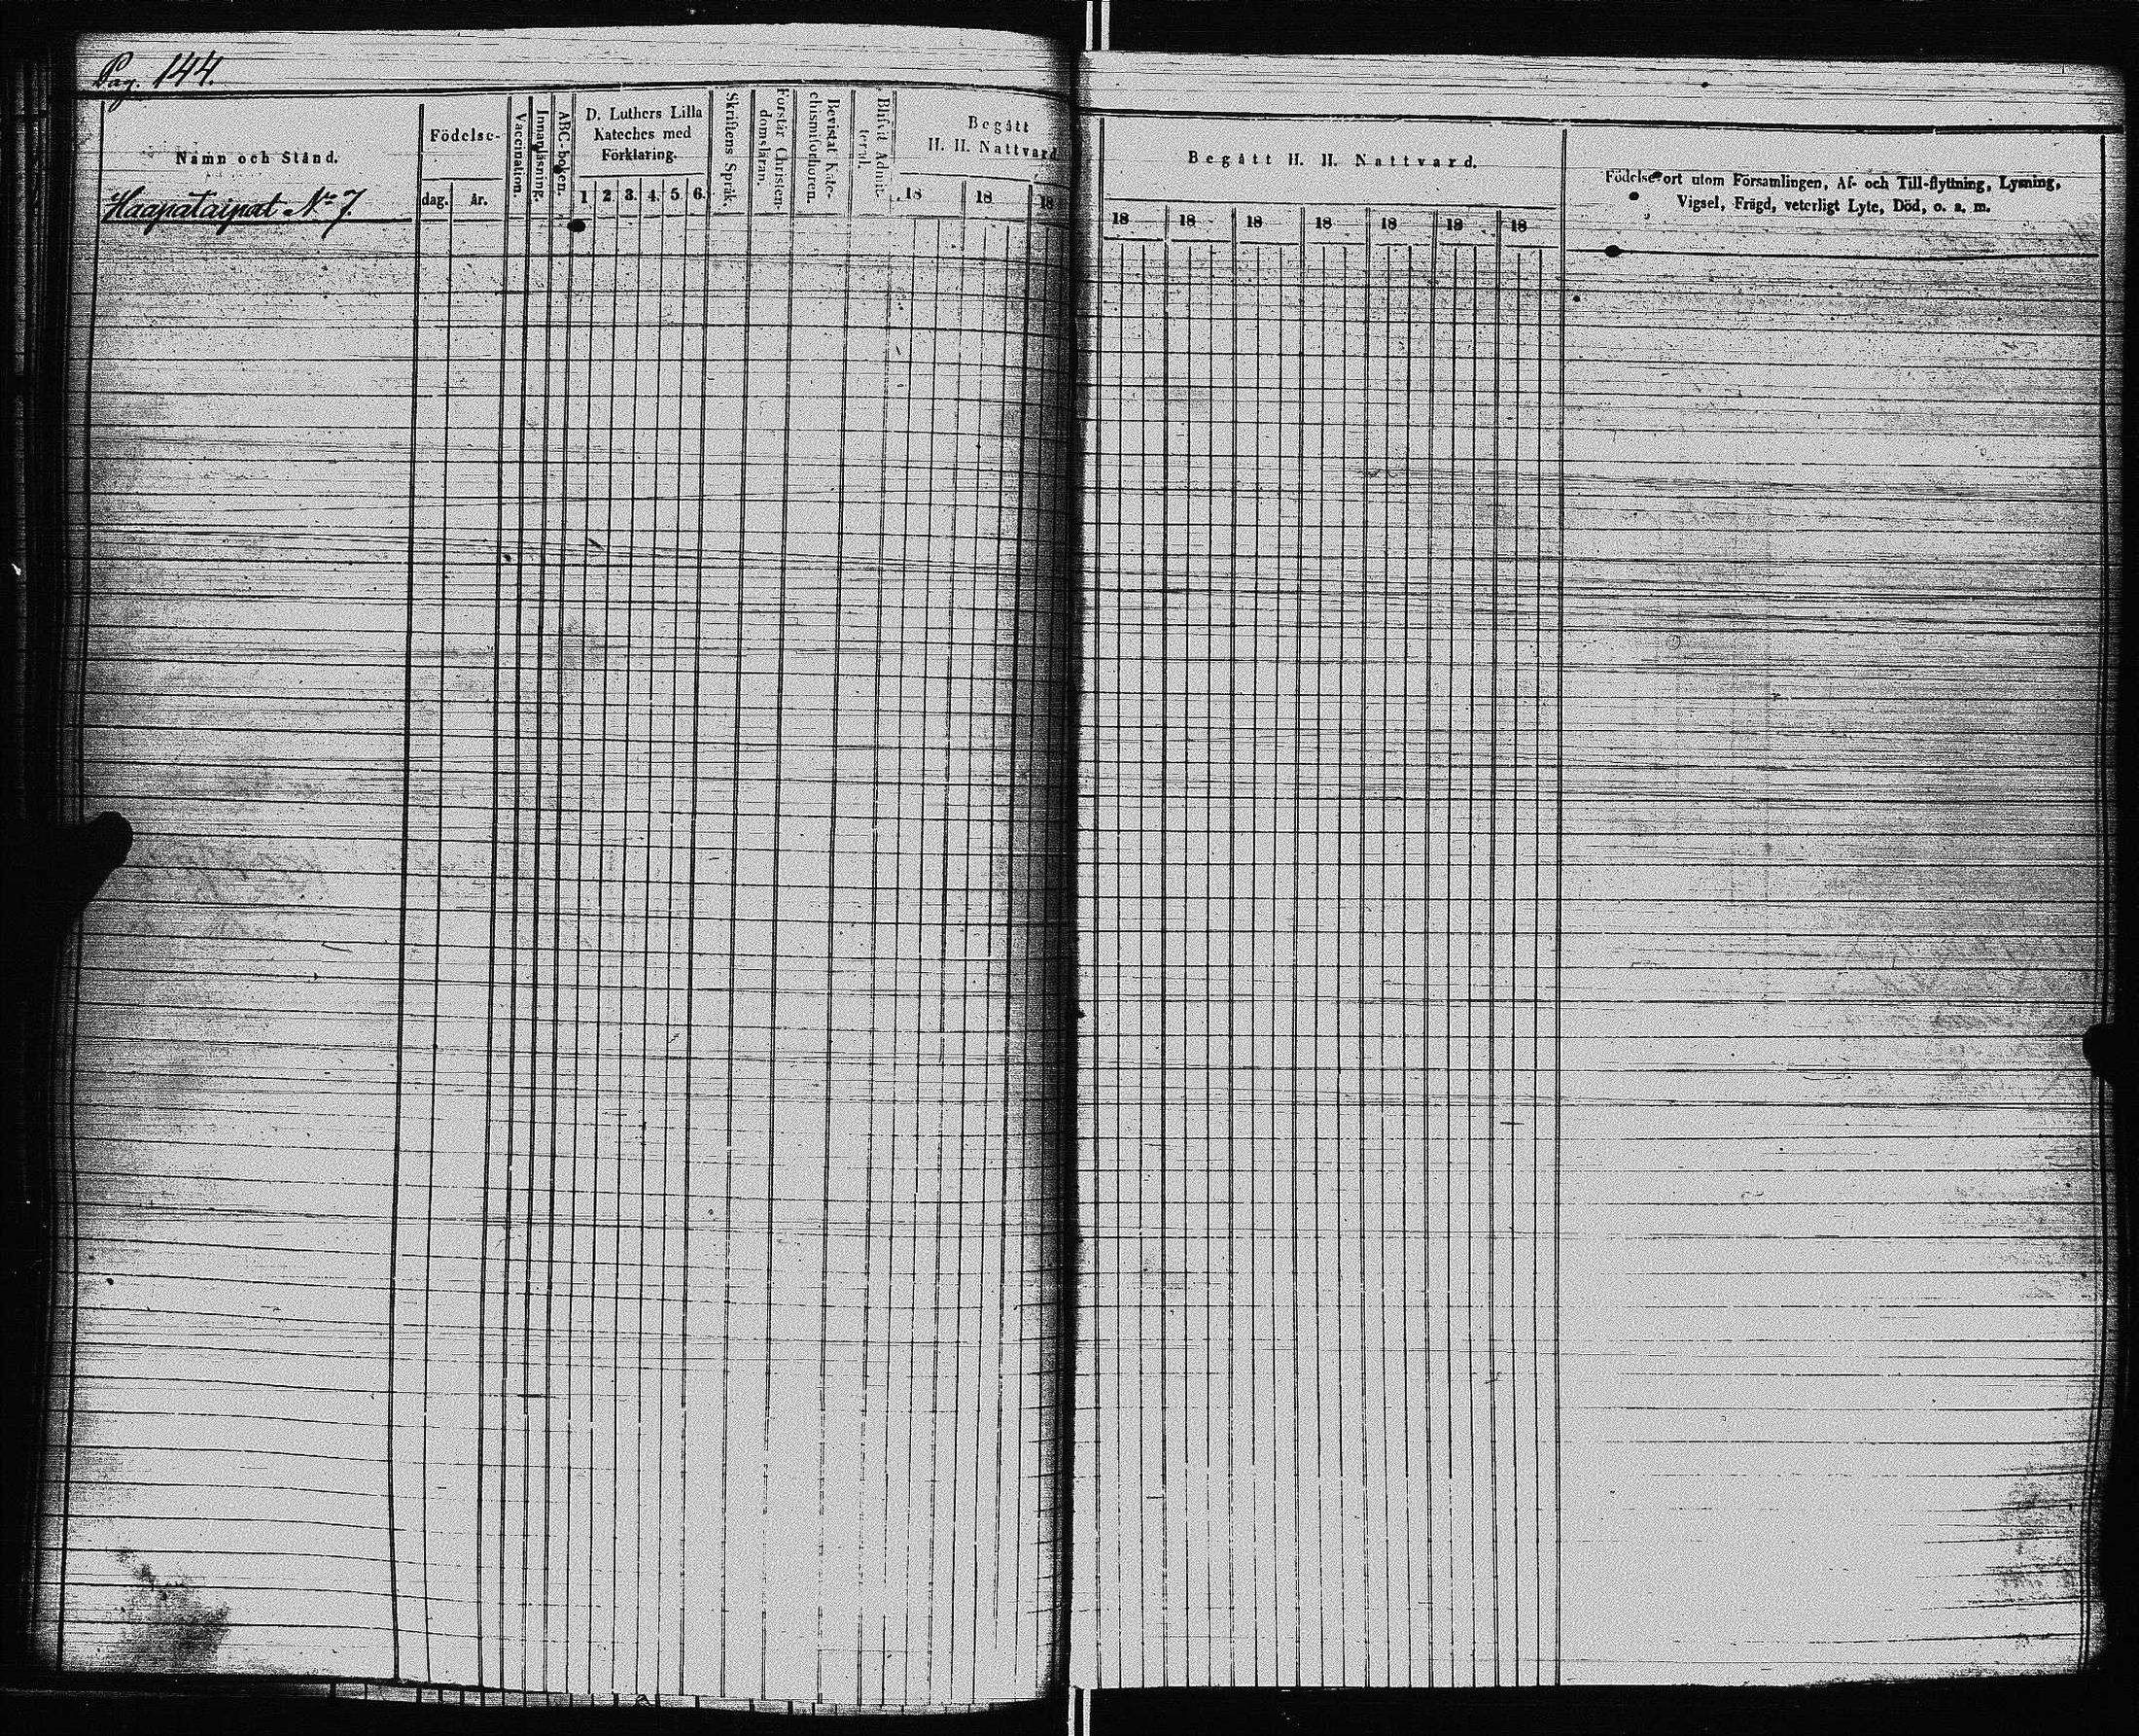 Pag. 144.
Namn och Stånd.
Haapataipat No 7.
Födelse-
dag.
år.
Vaccination.
Innanläsning.
ABC-boken.
D. Luthers Lilla
Kateches med
Förklaring.
1 2. 3. 4. 5 6.
Skriftens Språk.
Förstår Christen-
domsläran.
Bevistat Kate-
chismiförhören.
Blifvit Admit-
terad.
Begått
H. H. Nattvard.
18 18 18
Begått H. H. Nattvard.
18 18 18 18 18 18 18
Födelse-ort utom Församlingen, Af- och Till-flyttning, Lysning,
Vigsel, Frägd, veterligt Lyte, Död, o. s. m.